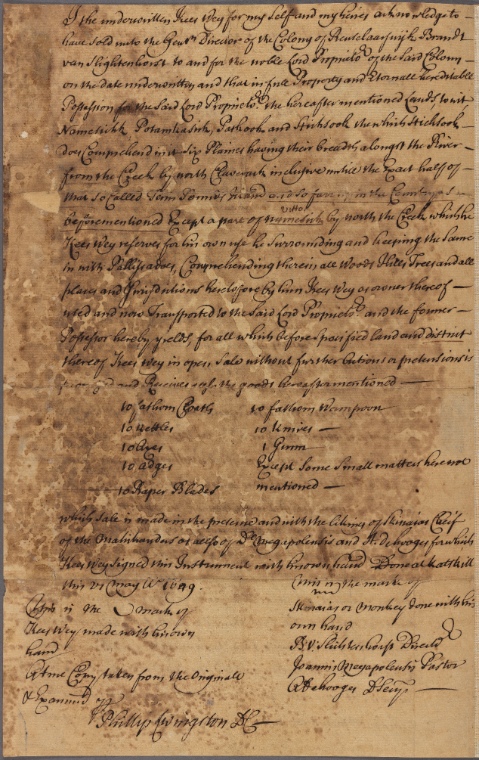 I the underwritten Kees Wey for my self and my heires acknowledge to
have sold unto the Gentn Director of the Colony of Renselaarswijk Brandt
van Slightenhorst to and for the noble Lord Proprieto.r of the said Colony
on the date underwritten and that in full Property and Eternall hereditable
Possession for the said Lord Proprieto.r the hereafter mentioned Lands to wit
Paskook and Stichkook the which Stichkook
does Comprehend in it Six Flames having their breadth alongst the River
from the Creek by north inclusive unto the Exact half of
that so Called Island and so far in the Country as
beforementioned Except a part of by north the Creek, which he
Kees Wey reserves for his own use he Surrounding and keeping the same
in with Pallisadoes, Comprehending therein all Woods Hills Trees and all
places and Jurisdictions heretofore by him Kees Wey as owner thereof
used and now Transported to the said Lord Proprieto.r and the former
Possessor hereby yields, for all which before Specified land and district
thereof Kees Wey in open Sale without further Cations or pretensions is
and Receives the goods hereaftermentioned
10 fathom Cloath 10 fathom Wampoon
10 Kettles 10 Knives
10 Axes 1 Gunn
10 adges Except Some Small matters here not
10 Raper Blades mentioned
which Sale is made in the presence and with the likeing of Skiwias Cheif
of the Mahikanders as also of Do. Megapolensis and A. dehooges for which
Kees Wey Signed this Instrument with his own hand Done at Katskill
this 21 May Ao 1649.
This is the mark of
This is the mark of
Skiwias or monkey done with his
Kees Wey made with his own
own hand
hand
B. V. Slichtenhorst Director
Joannis Megapolensis Pastor
A true Copy taken from the Originall
A de hooges
& Examined
Phillip Livingston